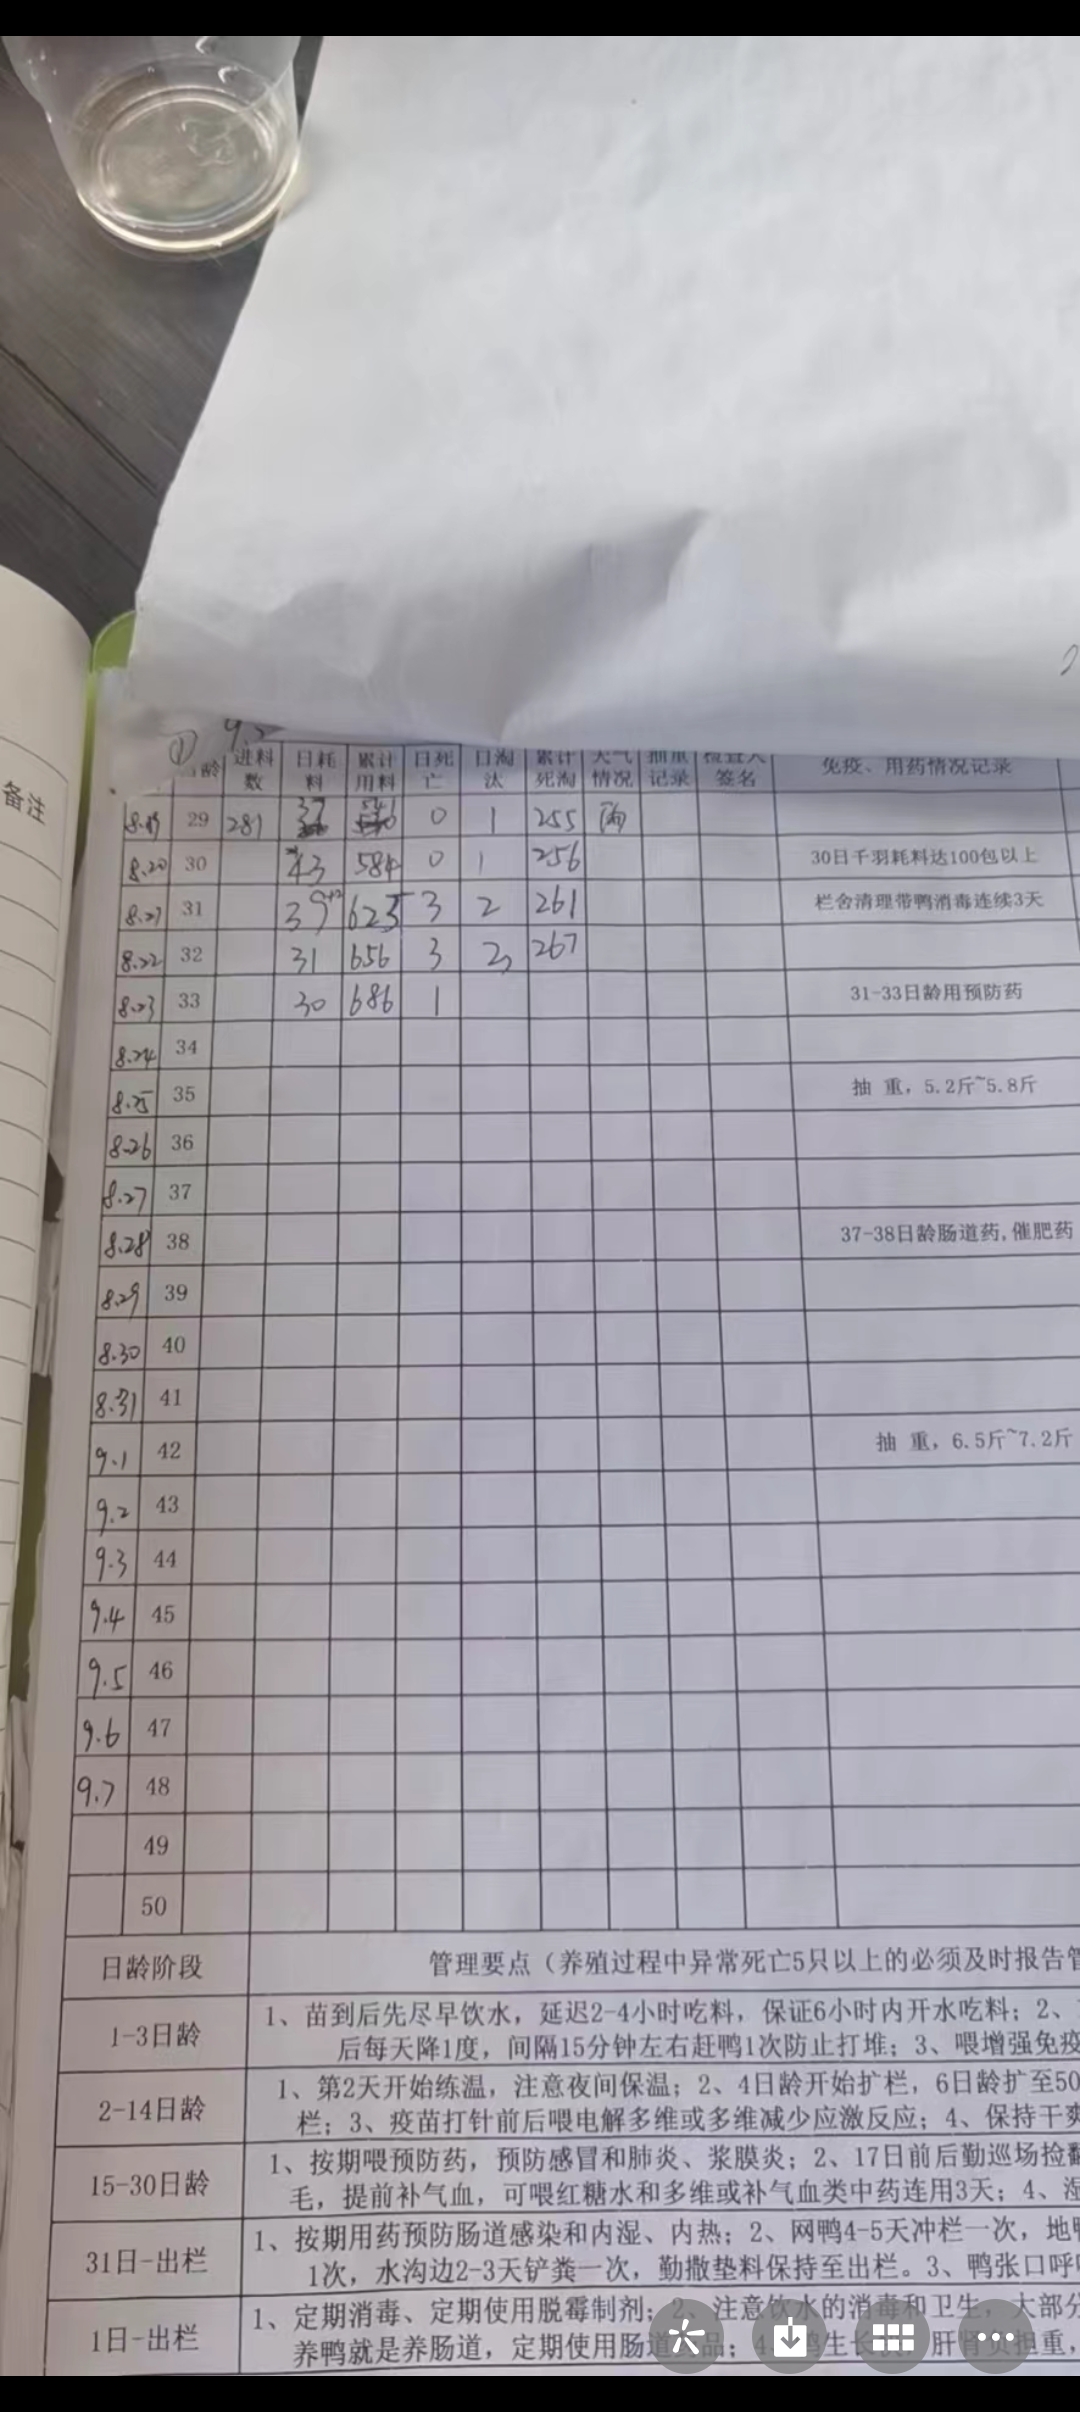 备注
① 9.
日龄 进料数 日耗料 累计用料 日死亡 日淘汰 累计死淘 天气情况 抽重记录 检查人签名 免疫、用药情况记录
8.19 29 281 37 541 0 1 255 雨
8.20 30 43 584 0 1 256 30日千羽耗料达100包以上
8.21 31 39+2 625 3 2 261 栏舍清理带鸭消毒连续3天
8.22 32 31 656 3 3 267
8.23 33 30 686 1 31-33日龄用预防药
8.24 34
8.25 35 抽 重，5.2斤~5.8斤
8.26 36
8.27 37
8.28 38 37-38日龄肠道药,催肥药
8.29 39
8.30 40
8.31 41
9.1 42 抽 重，6.5斤~7.2斤
9.2 43
9.3 44
9.4 45
9.5 46
9.6 47
9.7 48
49
50
日龄阶段 管理要点（养殖过程中异常死亡5只以上的必须及时报告管
1-3日龄 1、苗到后先尽早饮水，延迟2-4小时吃料，保证6小时内开水吃料；2、
后每天降1度，间隔15分钟左右赶鸭1次防止打堆；3、喂增强免疫
2-14日龄 1、第2天开始练温，注意夜间保温；2、4日龄开始扩栏，6日龄扩至50
栏；3、疫苗打针前后喂电解多维或多维减少应激反应；4、保持干爽
15-30日龄 1、按期喂预防药，预防感冒和肺炎、浆膜炎；2、17日前后勤巡场捡翻
毛，提前补气血，可喂红糖水和多维或补气血类中药连用3天；4、湿
31日-出栏 1、按期用药预防肠道感染和内湿、内热；2、网鸭4-5天冲栏一次，地鸭
1次，水沟边2-3天铲粪一次，勤撒垫料保持至出栏。3、鸭张口呼
1日-出栏 1、定期消毒、定期使用脱霉制剂；2、注意饮水的消毒和卫生，大部分
养鸭就是养肠道，定期使用肠道药品；4、鸭生长快，肝肾负担重，